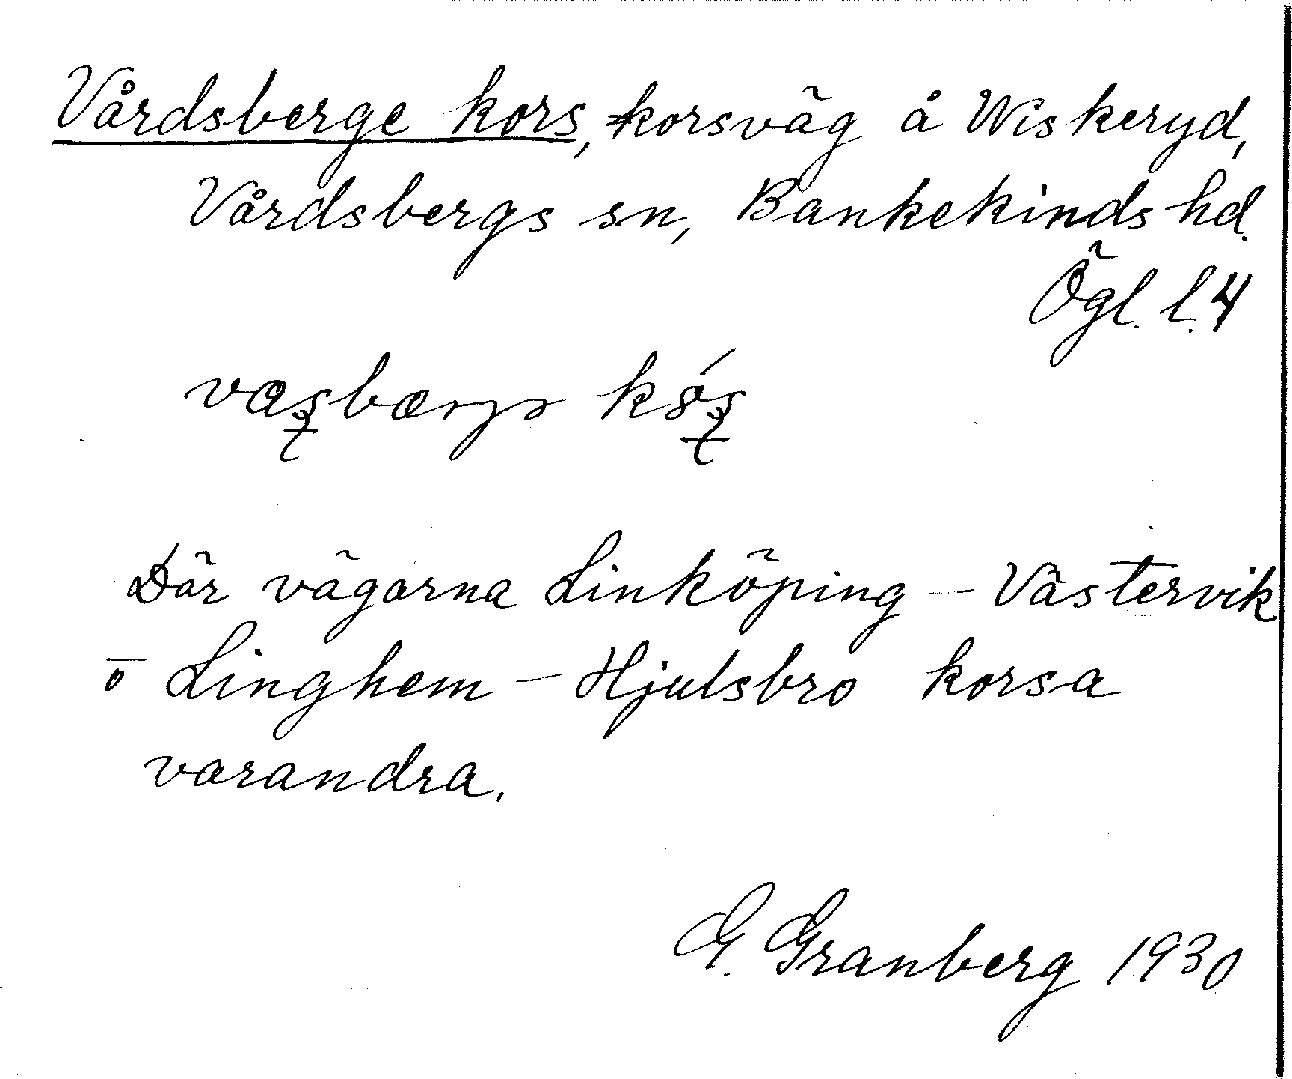 Vårdsberge kors, korsväg å Wiskeryd,
Vårdsbergs sn, Bankekinds hd.
Ögl. l. 4
Där vägarna Linköping – Västervik
o Linghem – Hjulsbro korsa
varandra.
G. Granberg 1930